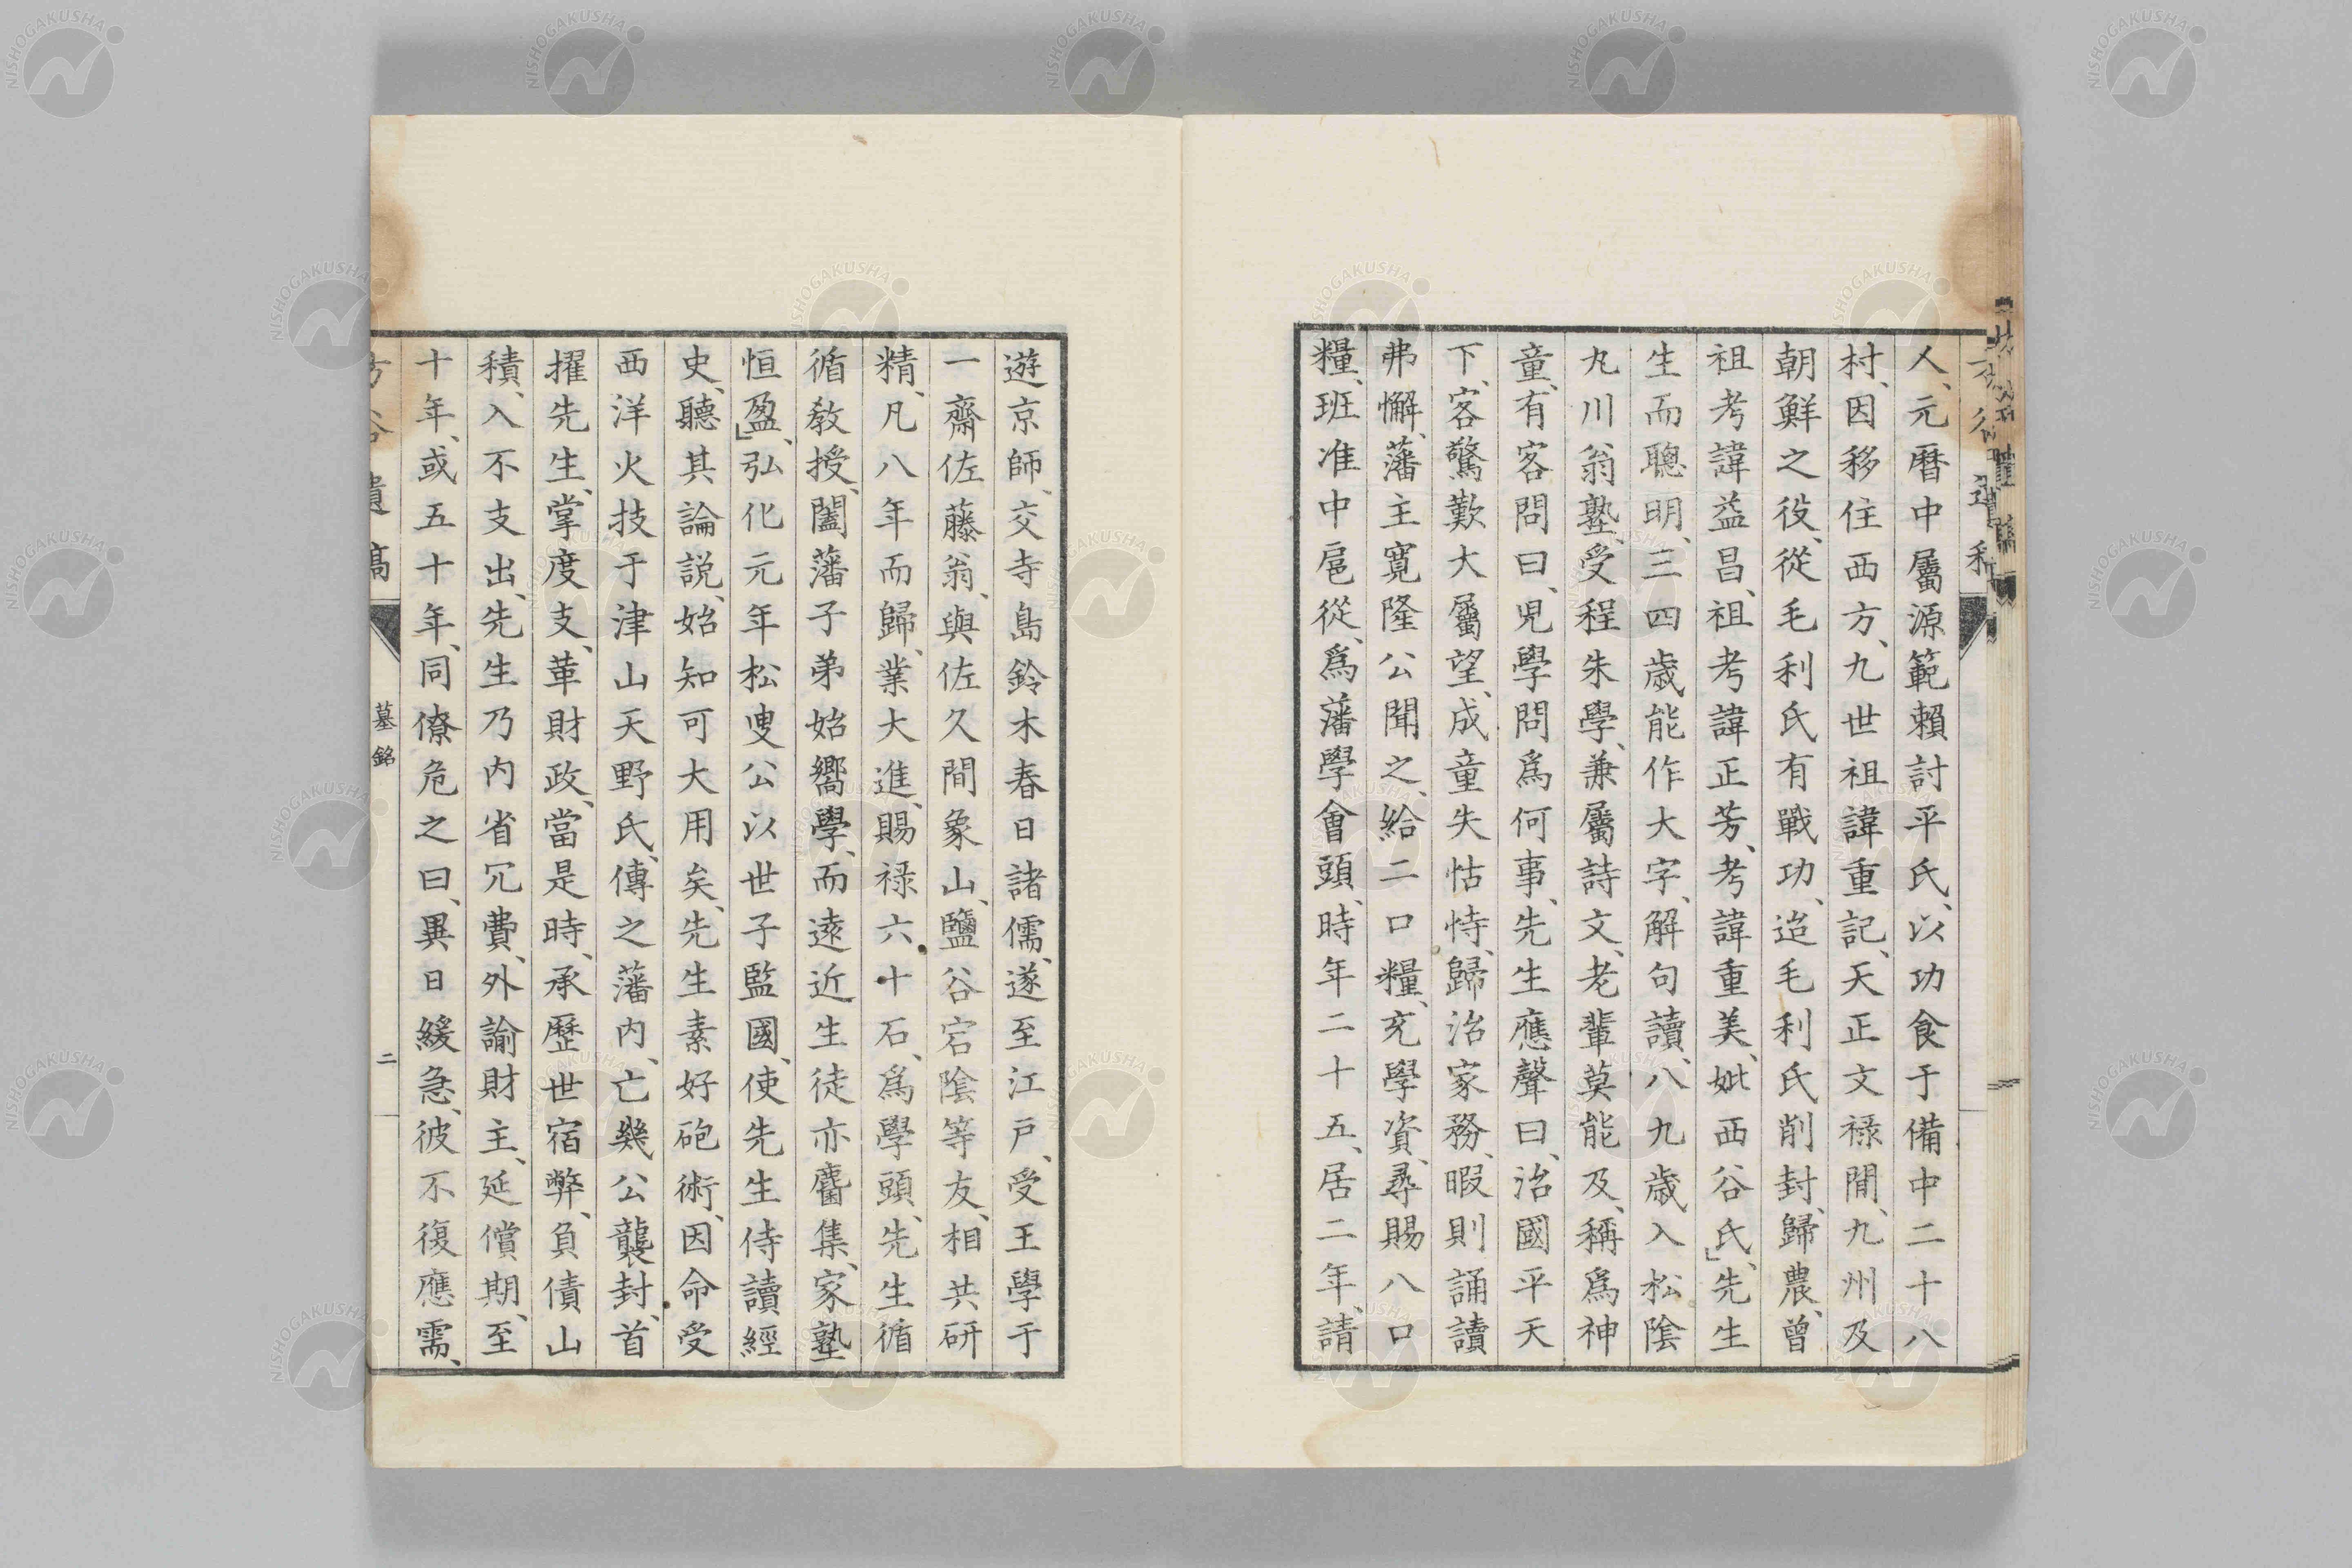 人、元曆中屬源範賴討平氏、以功食于備中二十八
村、因移住西方、九世祖諱重記、天正文祿間、九州及
朝鮮之役、從毛利氏有戰功、迨毛利氏削封、歸農、曾
祖考諱益昌、祖考諱正芳、考諱重美、妣西谷氏、」先生
生而聰明、三四歲能作大字、解句讀、八九歲入松陰
丸川翁塾、受程朱學、兼屬詩文、老輩莫能及、稱爲神
童、有客問曰、兒學問爲何事、先生應聲曰、治國平天
下、客驚歎大屬望、成童失怙恃、歸治家務、暇則誦讀
弗懈、藩主寬隆公聞之、給二口糧、充學資、尋賜八口
糧、班准中扈從、爲藩學會頭、時年二十五、居二年、請
遊京師、交寺島鈴木春日諸儒、遂至江戶、受王學于
一齋佐藤翁、與佐久間象山、鹽谷宕陰等友、相共研
精、凡八年而歸、業大進、賜祿六十石、爲學頭、先生循
循敎授、闔藩子弟始嚮學、而遠近生徒亦麕集、家塾
恒盈、」弘化元年松叟公以世子監國、使先生侍讀經
史、聽其論說、始知可大用矣、先生素好砲術、因命受
西洋火技于津山天野氏、傳之藩內、亡幾公襲封、首
擢先生、掌度支、革財政、當是時、承歷世宿弊、負債山
積、入不支出、先生乃內省冗費、外諭財主、延償期、至
十年、或五十年、同僚危之曰、異日緩急、彼不復應需、
墓銘
二
NISHOGAKUSHA